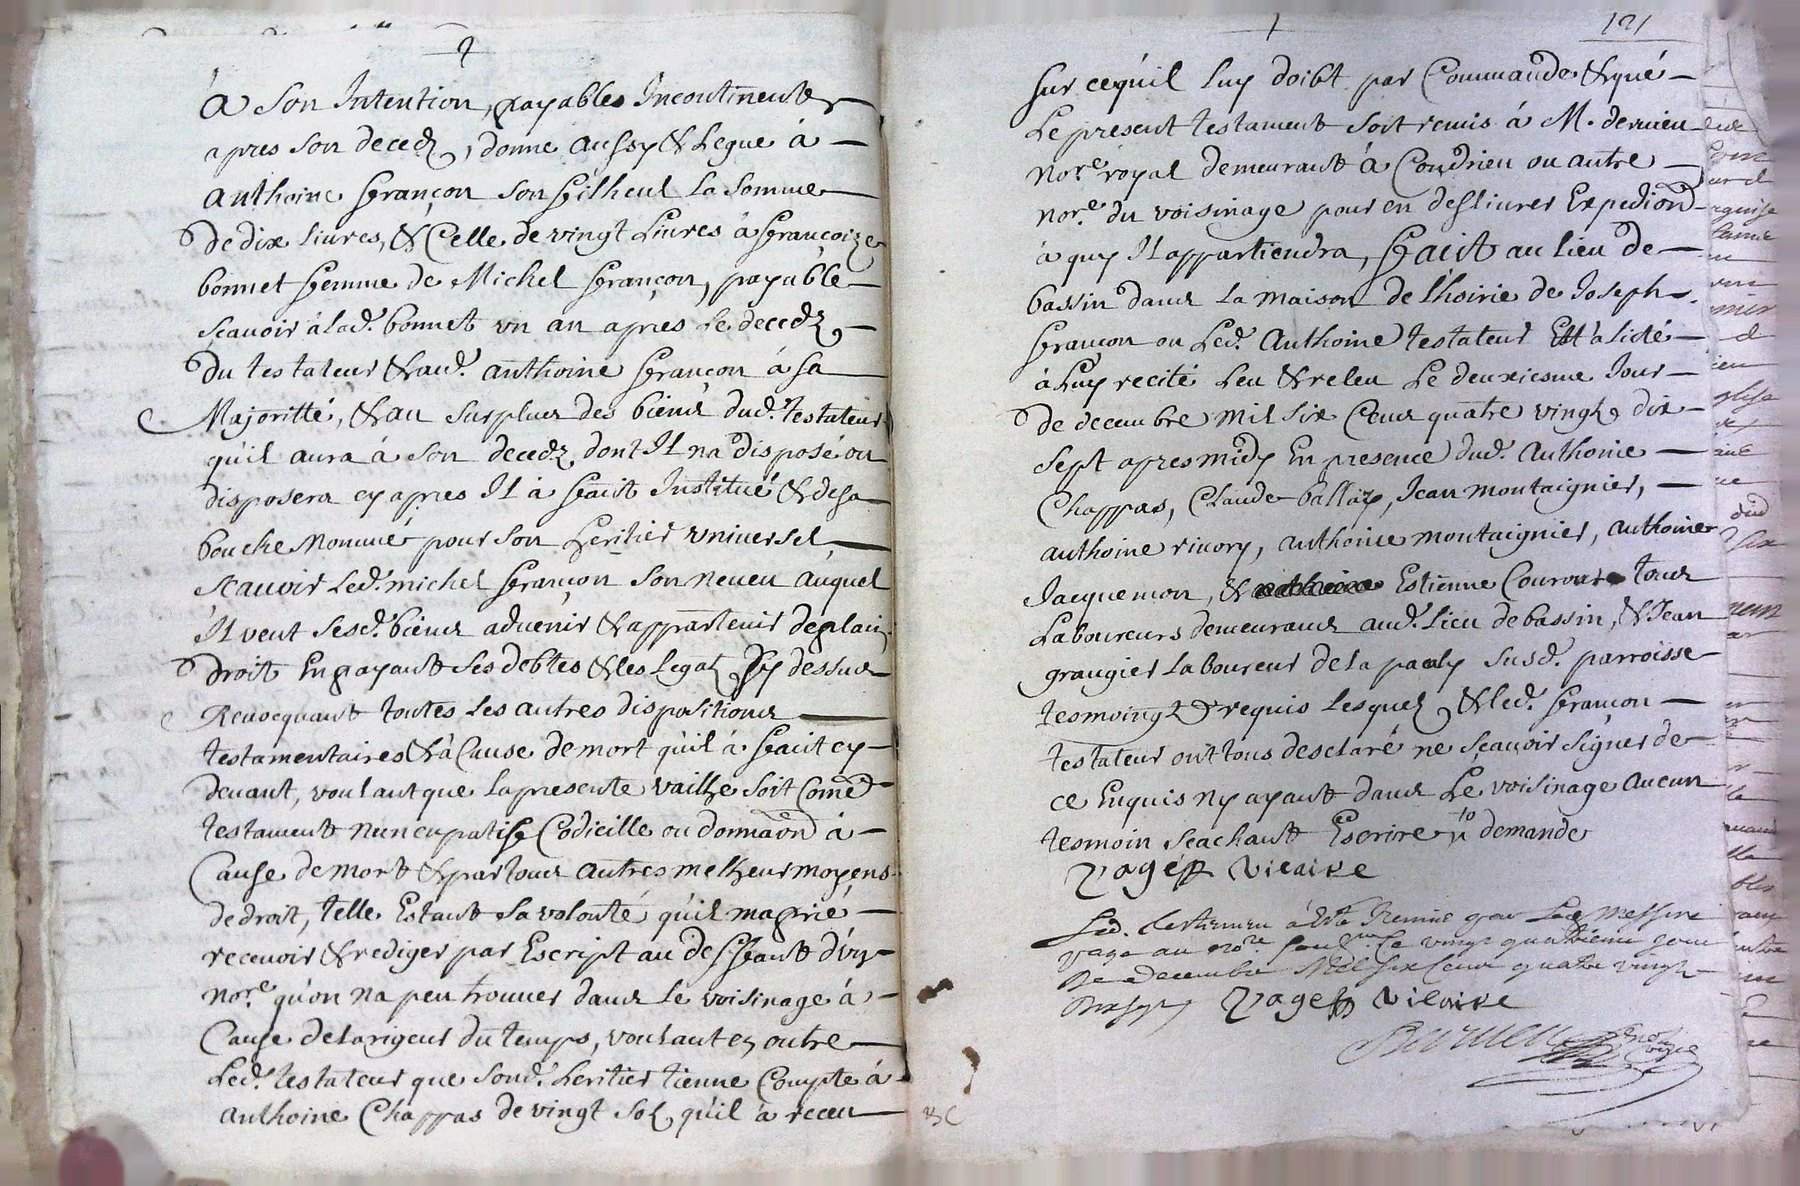 à son Intention, payables Incontinent
apres son decedz, donne aussy & Legue à
anthoine françon son filheul la somme
de dix livres, & Celle de vingt Livres à françoize
bonnet femme de Michel françon, payable
scavoir à lad. bonnet un an apres le decedz
du testateur & aud. anthoine françon à sa
Majoritté, & au surplus des biens dud. testateur
qu'il aura à son decedz dont Il na disposé ou
disposera cy apres Il à fait Institué & de sa
bouche Nommé pour son heritier universel,
scavoir led. michel françon son neveu auquel
Il veut sesd. biens advenir & appartenir de plain
droit En payant ses debtes & les legatz Cy dessus
Revocquant toutes les autres dispositions
testamentaires & à Cause de mort qu'il à fait cy
devant, voulant que la presente vailhe soit Come
testament nuncupatif Codicille ou donnaon à
Cause de mort & par tous autres melheurs moyens
de droit, telle Estant sa volonté qu'il ma prié
recevoir & rediger par Escript au deffaut d'un
nore. qu'on na peu trouver dans le voisinage à
Cause de la rigeur du temps, voulant en outre
led. testateur que sond. heritier tienne Compte à
anthoine Chappas de vingt sols qu'il à receu
121
sur cequil luy doibt par Commande & que
Le present testament soit remis à M. dervieu
nore. royal demeurant à Condrieu ou autre
nore. du voisinage pour en deslivrer Expedion
à quy Il appartiendra, fait au lieu de
bassin dans la maison de l'hoirie de Joseph
françon ou led. Anthoine testateur Est alicté
à Luy recité leu & releu le deuxiesme Jour
de decembre mil six Cens quatre vingtz dix
sept apres midy En presence dud. Anthoine
Chappas, Claude ballaz, Jean montaignier,
anthoine rivory, anthoine montaignier, anthoine
Jacquemon, & Estienne tous
Laboureurs demeurans aud. lieu de bassin, & Jean
grangier laboureur de la susd. parroisse
tesmoingtz requis lesquelz & led. françon
testateur ont tous desclaré ne sçavoir signer de
ce Enquis ny ayant dans Le voisinage aucun
tesmoin seachant Escrire demande
vicaire
Led. testamen à esté Remis par led. Messire
au nore. le vingt quatriesme jour
de decembre Mil six Cens quatre vingt
vicaire
Dervieu